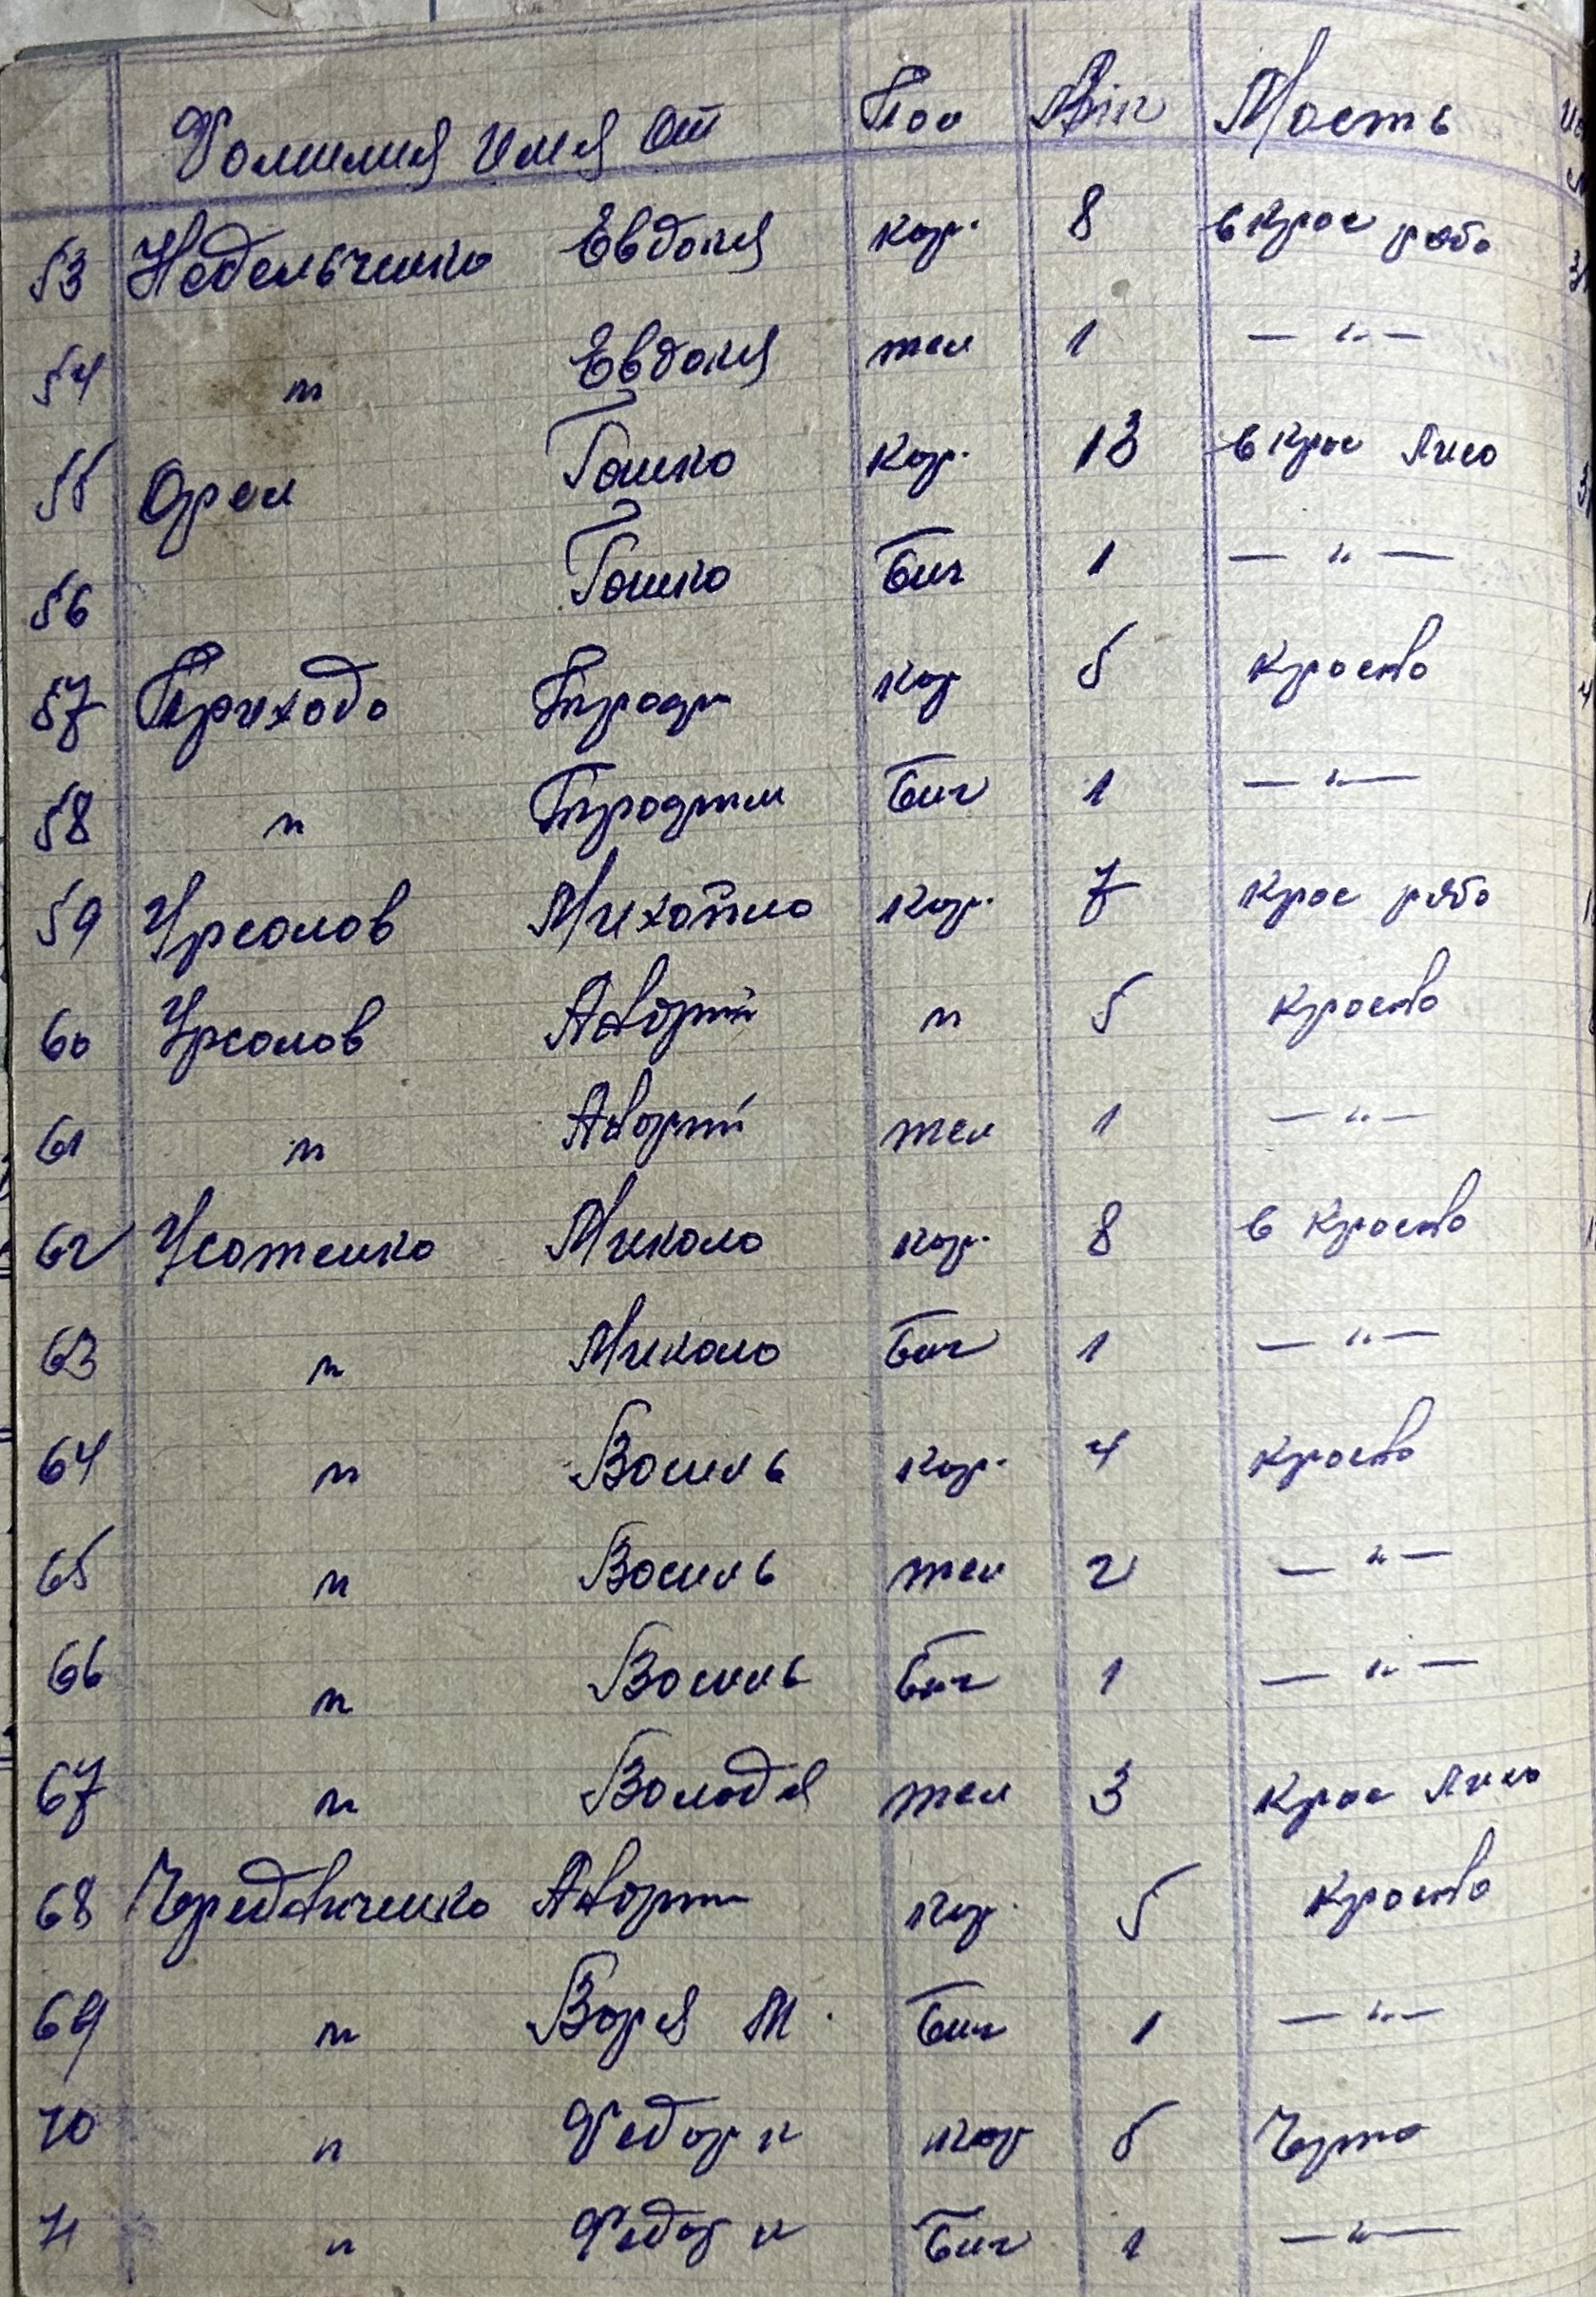 Фамилия Имя От Пол Вік Масть
53 Недельченко Евдокия кор. 8 в крас рябо
54 " Евдокия тел 1 — " —
55 Орел Гашко кор. 13 в крас Лисо
56 Гашко бич 1 — " —
57 Приходо кор 5 красно
58 " бич 1 — " —
59 Урсалов Михайло кор. 7 крас рябо
60 Урсалов " 5 красно
61 " тел 1 — " —
62 Усатенко Микола кор. 8 в красно
63 " Микола бич 1 — " —
64 " Василь кор. 4 красно
65 " Василь тел 2 — " —
66 " Василь бич 1 — " —
67 " Володя тел 3 крас Лисо
68 кор. 5 красно
69 " Варя М. бич 1 — " —
70 " Федор к кор 5 Черно
71 " Федор к бич 1 — " —